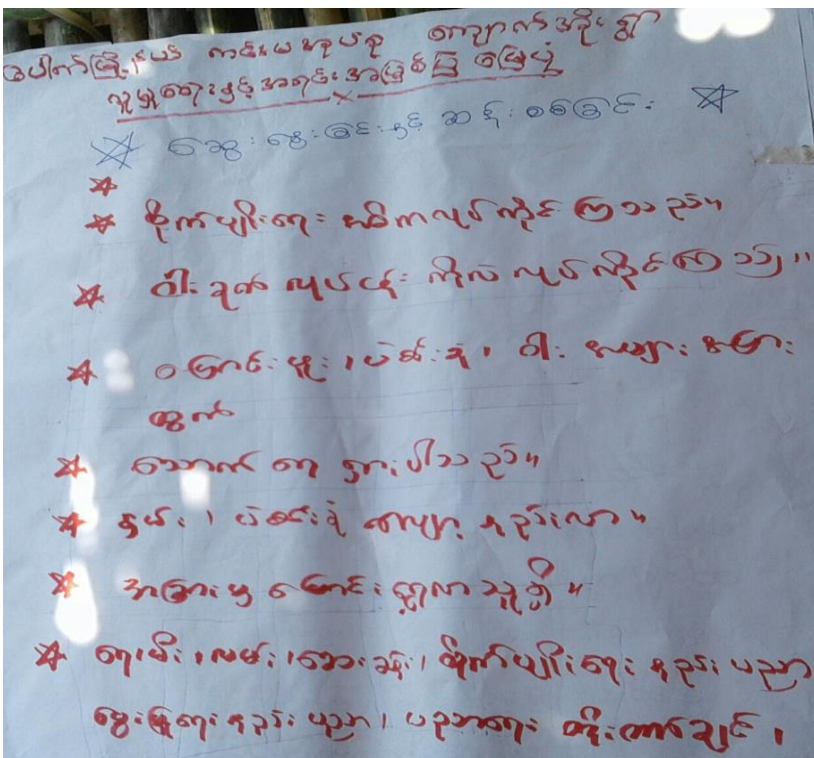 ပေါက်မြို့နယ် ကင်းမအုပ်စု ကျောက်အိုးရွာ
လူမှုရေးနှင့်အရင်းအမြစ်ပြ မြေပုံ
ဆွေးနွေးခြင်းနှင့် ဆန်းစစ်ခြင်း
စိုက်ပျိုးရေး အဓိကလုပ်ကိုင်ကြသည်။
ဝါးခုတ်လုပ်ငန်းကိုလဲ လုပ်ကိုင်ကြသည်။
ဝါး အများအပြား
ထွက်
သောက်ရေ ရှားပါသည်။
နှမ်း၊ ပဲစင်းငုံ လျော့နည်းလာ။
အခြားမှ ပြောင်းရွှေ့လာသူရှိ။
ရေ၊ မီး၊ လမ်း၊ ဆေးခန်း၊ စိုက်ပျိုးရေး နည်းပညာ
မွေးမြူရေးနည်းပညာ၊ ပညာရေး တိုးတက်ချင်၊